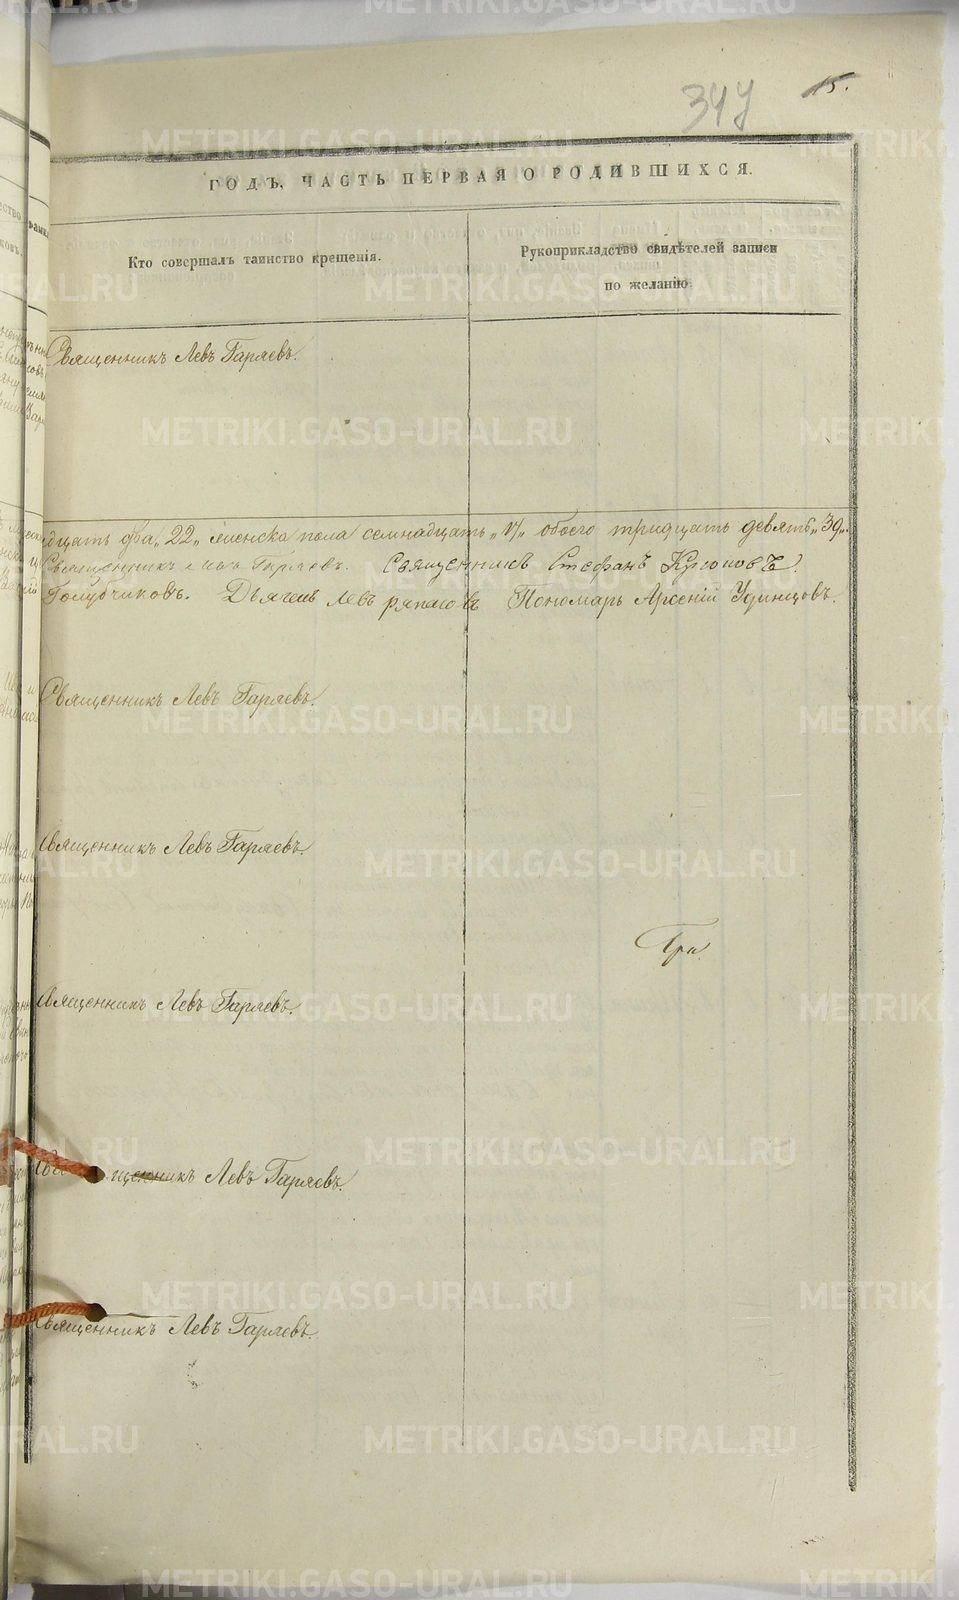 347
15.
ГОДЪ, ЧАСТЬ ПЕРВАЯ О РОДИВШИХСЯ.
Кто совершалъ таинство крещенія.
Рукоприкладство свидѣтелей записи
по желанію.
Священникъ Левъ Гаряевъ.
дцать два „22„ женска пола семнадцать „17„ обоего тридцать девять „39„.
Священникъ Левъ Гаряевъ. Священникъ Стефанъ
Голубчиковъ. Дьячекъ Левъ Пономарь Арсеній Удинцовъ.
Священникъ Левъ Гаряевъ.
Священникъ Левъ Гаряевъ.
Три.
Священникъ Левъ Гаряевъ.
щенникъ Левъ Гаряевъ.
Священникъ Левъ Гаряевъ.
METRIKI.GASO-URAL.RU